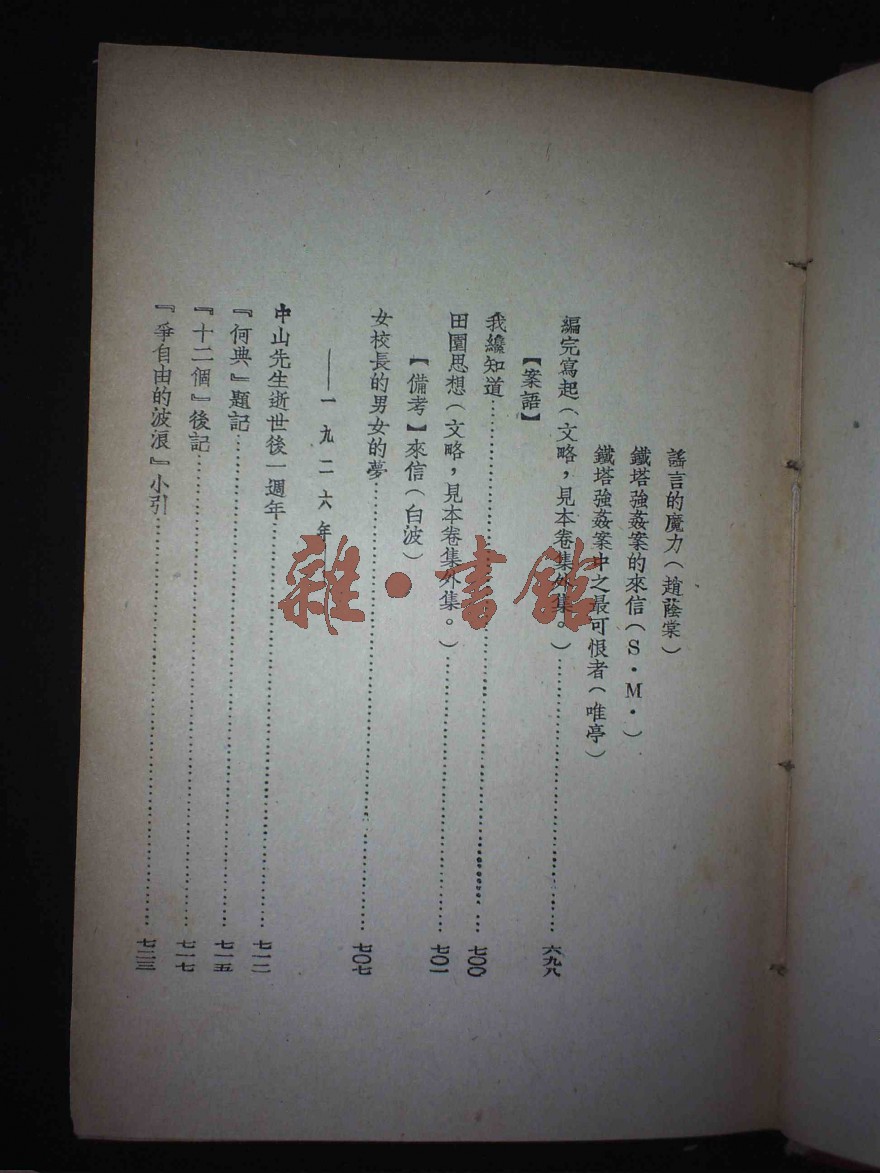 謠言的魔力(趙蔭棠)
鐵塔強姦案的來信(S·M·)
鐵塔強姦案中之最可恨者(唯亭)
編完寫起(文略,見本卷集外集。)……六九八
【案語】
我纔知道……七〇〇
田園思想(文略,見本卷集外集。)……七〇一
【備考】來信(白波)
女校長的男女的夢……七〇七
——一九二六年
中山先生逝世後一週年……七一二
『何典』題記……七一五
『十二個』後記……七一七
『爭自由的波浪』小引……七二三
雜·書館